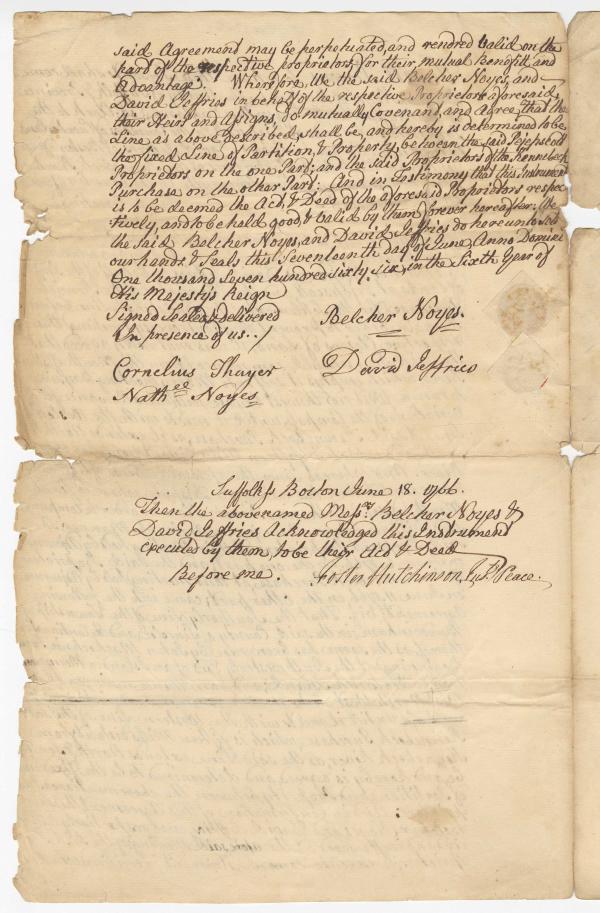 said Agreement may be perpetuated, and rendred Valid on the
part of the respective proprietors, for their mutual Benefit and
Advantage. Wherefore We the said Belcher Noyes, and
David Jeffries in behalf of the respective Proprietors aforesaid
their Heirs and Assigns, do mutually Covenant, and Agree, that the
Line as above described, shall be, and hereby is determined to be
the fixed Line of Partition, & Property, between the said Pejepscott
Proprietors on the one Part; and the said Proprietors of the Kennebeck
Purchase on the other Part: And in Testimony that this Instrument
is to be deemed the Act, & Deed of the aforesaid Proprietors respec
tively, and to be held good, & Valid by them forever hereafter; We
the said Belcher Noyes, and David Jeffries do hereunto Set
our hands & Seals this Seventeenth day of June Anno Domini
One thousand Seven hundred sixty six, in the Sixth Year of
His Majesty's Reign
Signed Sealed & delivered
In presence of us..
Belcher Noyes.
Cornelius Thayer
David Jeffries
Nathll Noyes
Suffolk ss Boston June 18. 1766.
Then the abovenamed Messrs. Belcher Noyes &
David Jeffries Acknowledged this Instrument
executed by them to be their Act & Deed
Before me. Foster Hutchinson Justs Peace.